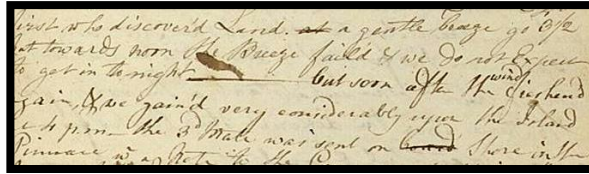 first who discover'd Land. at a gentle breeze go 3/2
but towards noon the Breeze faild & we do not Expect
to get in to night but soon after the wind freshend
again, & we gain'd very considerably upon the Island
4 pm the 3d Mate was sent on board Shore in the
Pinnace w a Note to the